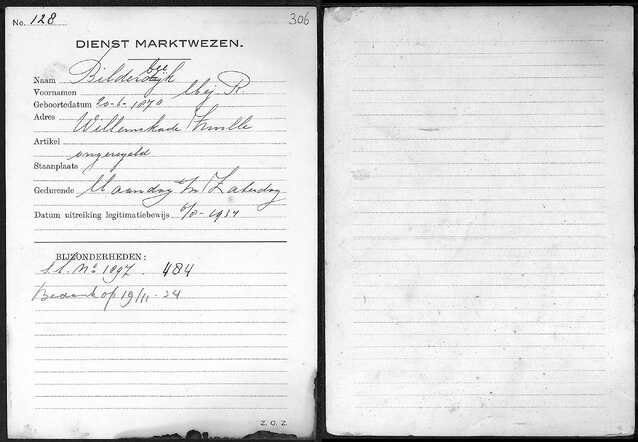 No. 128
306
DIENST MARKTWEZEN.
Naam Bilder
Voornamen Mej R
Geboortedatum 20-6-1870
Adres Willemskade Zwolle
Artikel ongeregeld
Staanplaats
Gedurende Maandag t/m Zaterdag
Datum uitreiking legitimatiebewijs 6/8-1934
BIJZONDERHEDEN:
s.l. No 1897. 484
Bedankt op 19/11-24
Z. O. Z.